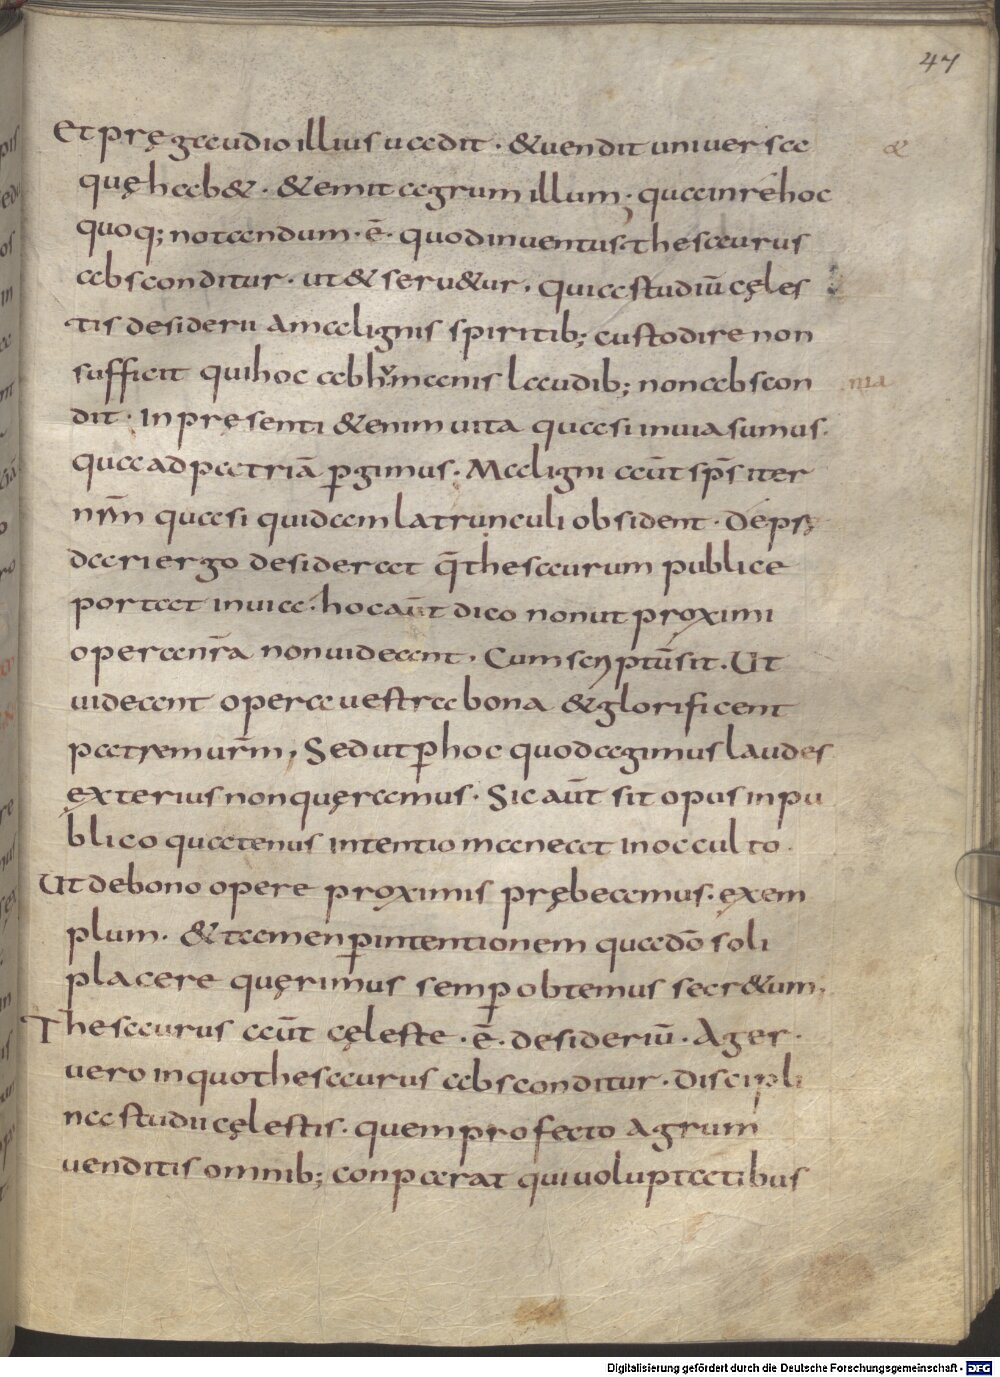 47
Et pręgaudio illius uadit · & uendit uniuersa
æ
quę hab& · & emit agrum illum · qua in re hoc
quoq; notandum · ē · quod inuentus · thesaurus
absconditur · ut & seru&ur · quia studiū cęles
tis desiderii A malignis spiritib; custodire non
sufficit qui hoc ab hymanis laudib; non abscon
dit · In pręsenti &enim uita quasi in uia sumus ·
qua ad patriā pgimus · Maligni aūt sps̄ iter
nr̄m quasi quidam latrunculi obsident · Depę
dari ergo desiderat q̄ thesaurum publice
portat in uia · hoc aūt dico non ut proximi
opera nr̄a non uideant · Cum scriptū sit · Ut
uideant opera uestra bona & glorificent
patrem ur̄m, Sed ut p hoc quod agimus laudes
exterius non quęramus · Sic aūt sit opus in pu
blico quatenus intentio maneat in occulto ·
Ut de bono opere proximis prębeamus · exem
plum · & tamen p intentionem qua dō soli
placere quęrimus semp obtemus secr&um,
Thesaurus aūt cęleste · ē · desideriū · Ager ·
uero in quo thesaurus absconditur · Discipli
na studii cęlestis · quem profecto Agrum
uenditis omnib; conparat qui uoluptatibus
Digitalisierung gefördert durch die Deutsche Forschungsgemeinschaft - DFG